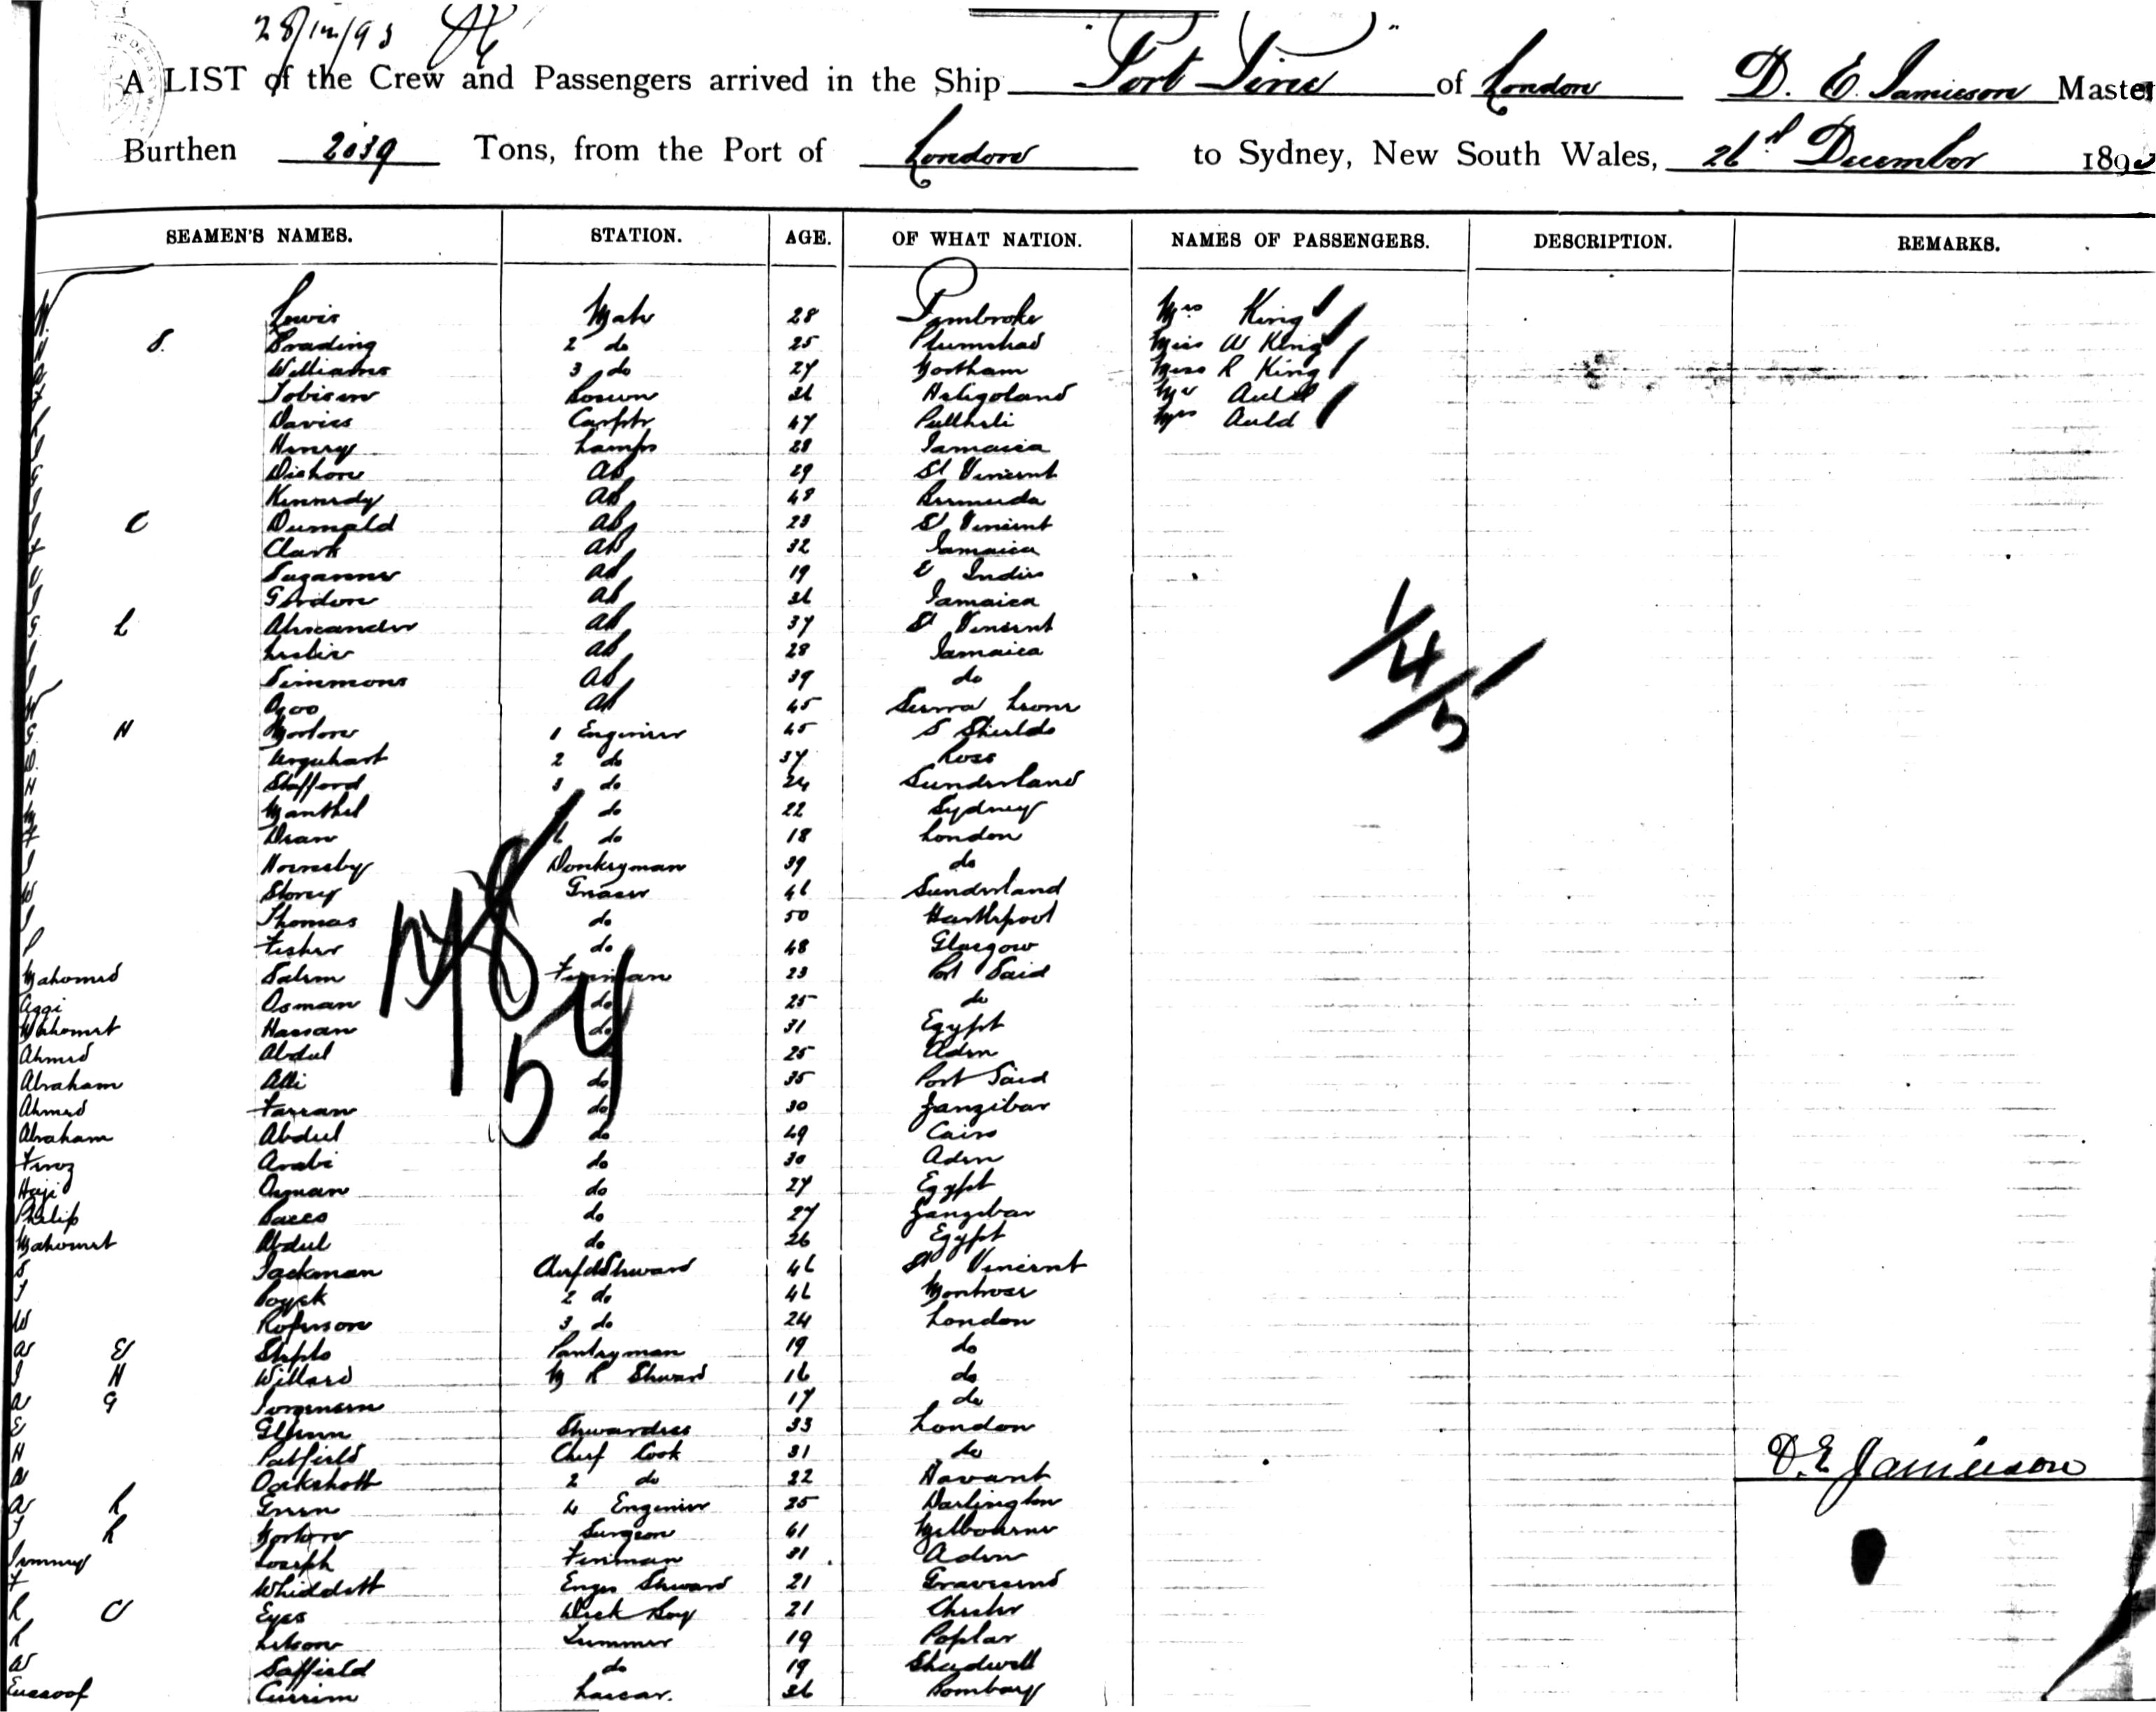 28/12/93
A LIST of the Crew and Passengers arrived in the Ship "Port Pirie" of London D. E. Jamieson Master
Burthen 2039 Tons, from the Port of London to Sydney, New South Wales, 26th December 189
SEAMEN'S NAMES. STATION. AGE. OF WHAT NATION. NAMES OF PASSENGERS. DESCRIPTION. REMARKS.
Lewis Mate 28 Pembroke Mrs King
S. Brading 2 do 25 Plumstead Miss W King
Williams 3 do 27 Northam Miss R King
Tobiesen Bosun 36 Heligoland Mr Auld
Davies Carptr 47 Pullheli Mrs Auld
Henry Lamps 28 Jamaica
Dishon AB 29 St Vincent
Kennedy AB 48 Bermuda
C Dumald AB 23 St Vincent
Clark AB 32 Jamaica
AB 19 E Indies
Gordon AB 36 Jamaica
L Alexander AB 37 St Vincent
Leslie AB 28 Jamaica
Simmons AB 39 do
AB 45 Sierra Leone
H 1 Engineer 45 S Shields
Urquhart 2 do 37 Ross
Stafford 3 do 24 Sunderland
Manthel do 22 Sydney
Dean 6 do 18 London
Hornsby Donkeyman 39 do
Storey Greaser 46 Sunderland
Thomas do 50 Hartlepool
Fisher do 48 Glasgow
Mahomed Salem Fireman 23 Port Said
Aggi Osman do 25 do
Mahomet Hassan do 31 Egypt
Ahmed Abdul 25 Aden
Abraham Alli do 35 Port Said
Ahmed Farran do 30 Zanzibar
Abraham Abdul do 49 Cairo
Feroz Arabi do 30 Aden
Haji Osman do 27 Egypt
Philip do 27 Zanzibar
Mahomet Abdul do 26 Egypt
S Jackman Chief Steward 46 St Vincent
J 2 do 46 Montrose
W Robinson 3 do 24 London
A E Pantryman 19 do
J H Willard M R Steward 16 do
A G Jorgensen 17 do
E Glenn Stewardess 33 London
H Patfield Chief Cook 31 do
A Oakshott 2 do 22 Havant
A R Green 4 Engineer 25 Darlington
J R Norton Surgeon 61 Melbourne
Jimmy Joseph Fireman 31 Aden
F Whiddett Engrs Steward 21 Gravesend
R C Eyes Deck Boy 21 Chester
R Letson Trimmer 19 Poplar
W Saffield do 19 Shadwell
Eussoof Currim Lascar. 36 Bombay
1/4/5
57
D. E Jamieson